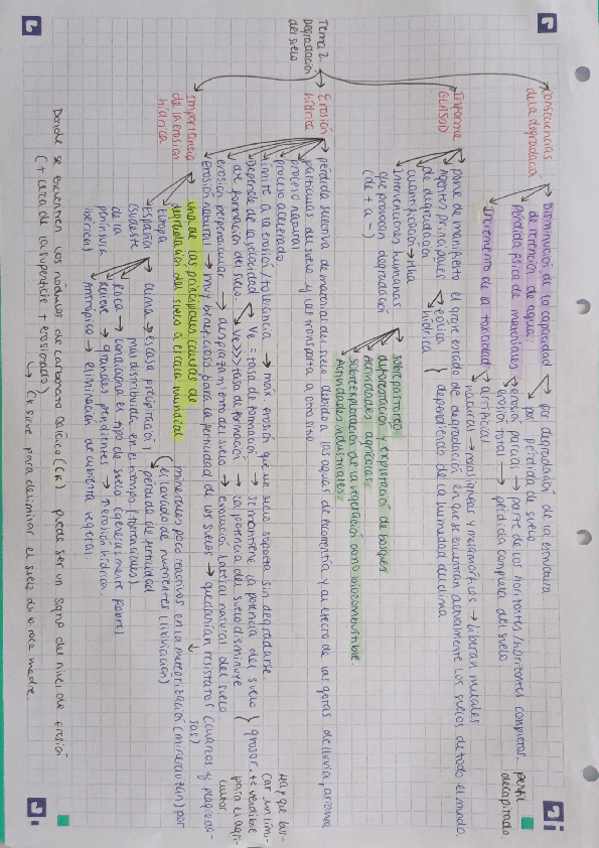 Tema 2.
Degradación
del suelo
Consecuencias
de la degradación
Disminución de la capacidad
de retención de agua
por degradación de la estructura
por pérdida de suelo
Pérdida física de materiales
erosión parcial → parte de los horizontes/horizontes completos
erosión total → pérdida completa del suelo
perfil
decapitado
Incremento de la toxicidad
artificial
natural → rocas ígneas y metamórficas → liberan metales
Informe
GLASOD
pone de manifiesto el grave estado de degradación en que se encuentran actualmente los suelos de todo el mundo.
Agentes principales
de degradación
eólica
hídrica
dependiendo de la humedad del clima
cuantificación → Mha
Intervenciones humanas
que provocan degradación
(de + a -)
sobrepastoreo
deforestación y explotación de bosques
Actividades agrícolas
sobreexplotación de la vegetación como biocombustible.
Actividades industriales
Erosión
hídrica
pérdida selectiva de material del suelo debido a las aguas de escorrentía y al efecto de las gotas de lluvia, arranca
partículas del suelo y las transporta a otro sitio
proceso natural
proceso acelerado
límite a la erosión/tolerancia → máx erosión que un suelo soporta sin degradarse
Depende de la velocidad
de formación del suelo
Ve = tasa de formación → se mantiene la potencia del suelo
Ve >>> tasa de formación → la potencia del suelo disminuye
grosor
Hay que bus-
car un lími-
te vendible
para el agri-
cultor
erosión perpendicular → desplazamiento del suelo → evolución lateral natural del suelo
erosión natural → muy beneficioso para la fertilidad de los suelos → quedarían resistatos (cuarzos y plagiocla-
sas)
minerales poco reactivos en la meteorización por
el lavado de nutrientes (lixiviación)
Importancia
de la erosión
hídrica
una de las principales causas de
degradación del suelo a escala mundial
Europa
España
(sudeste
de la
península
ibérica)
clima → escasa precipitación y
mal distribuida en el tiempo (torrenciales)
pérdida de fertilidad
roca → condiciona el tipo de suelo (generalmente pobre)
relieve → grandes pendientes → ↑ erosión hídrica.
Antrópico → eliminación de cubierta vegetal
Donde se encuentren los nódulos de carbonato cálcico (Ck) puede ser un signo del nivel de erosión
(+ cerca de la superficie + erosionado)
↳ Ck sirve para delimitar el suelo de la roca madre